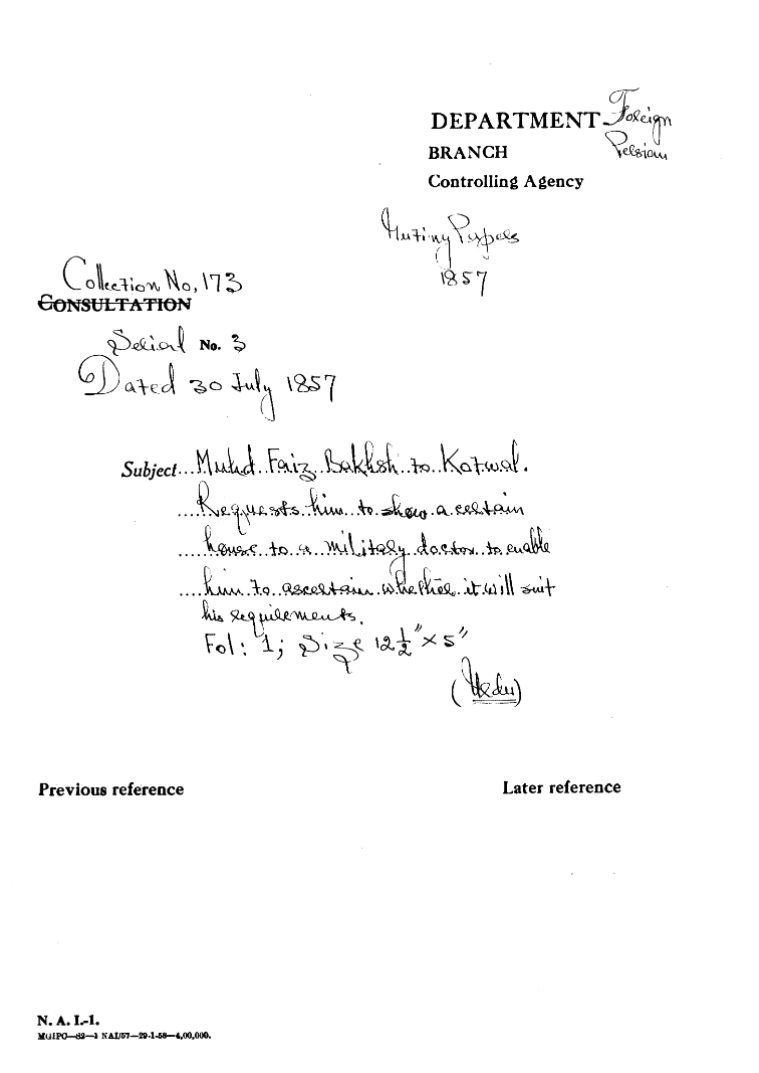 DEPARTMENT Foreign
BRANCH Persian
Controlling Agency
Mutiny Papers
1857
Collection No, 173
CONSULTATION
Serial No. 3
Dated 30 July 1857
Subject...Muhd. Faiz Bakhsh to Kotwal.
Requests him to show a certain
house to a military doctor to enable
him to ascertain whether it will suit
his requirements.
Fol: 1; Size 12½" × 5"
(Urdu)
Previous reference
Later reference
N. A. I.-1.
MGIPC—82—1 NAI/57—29-1-58—4,00,000.